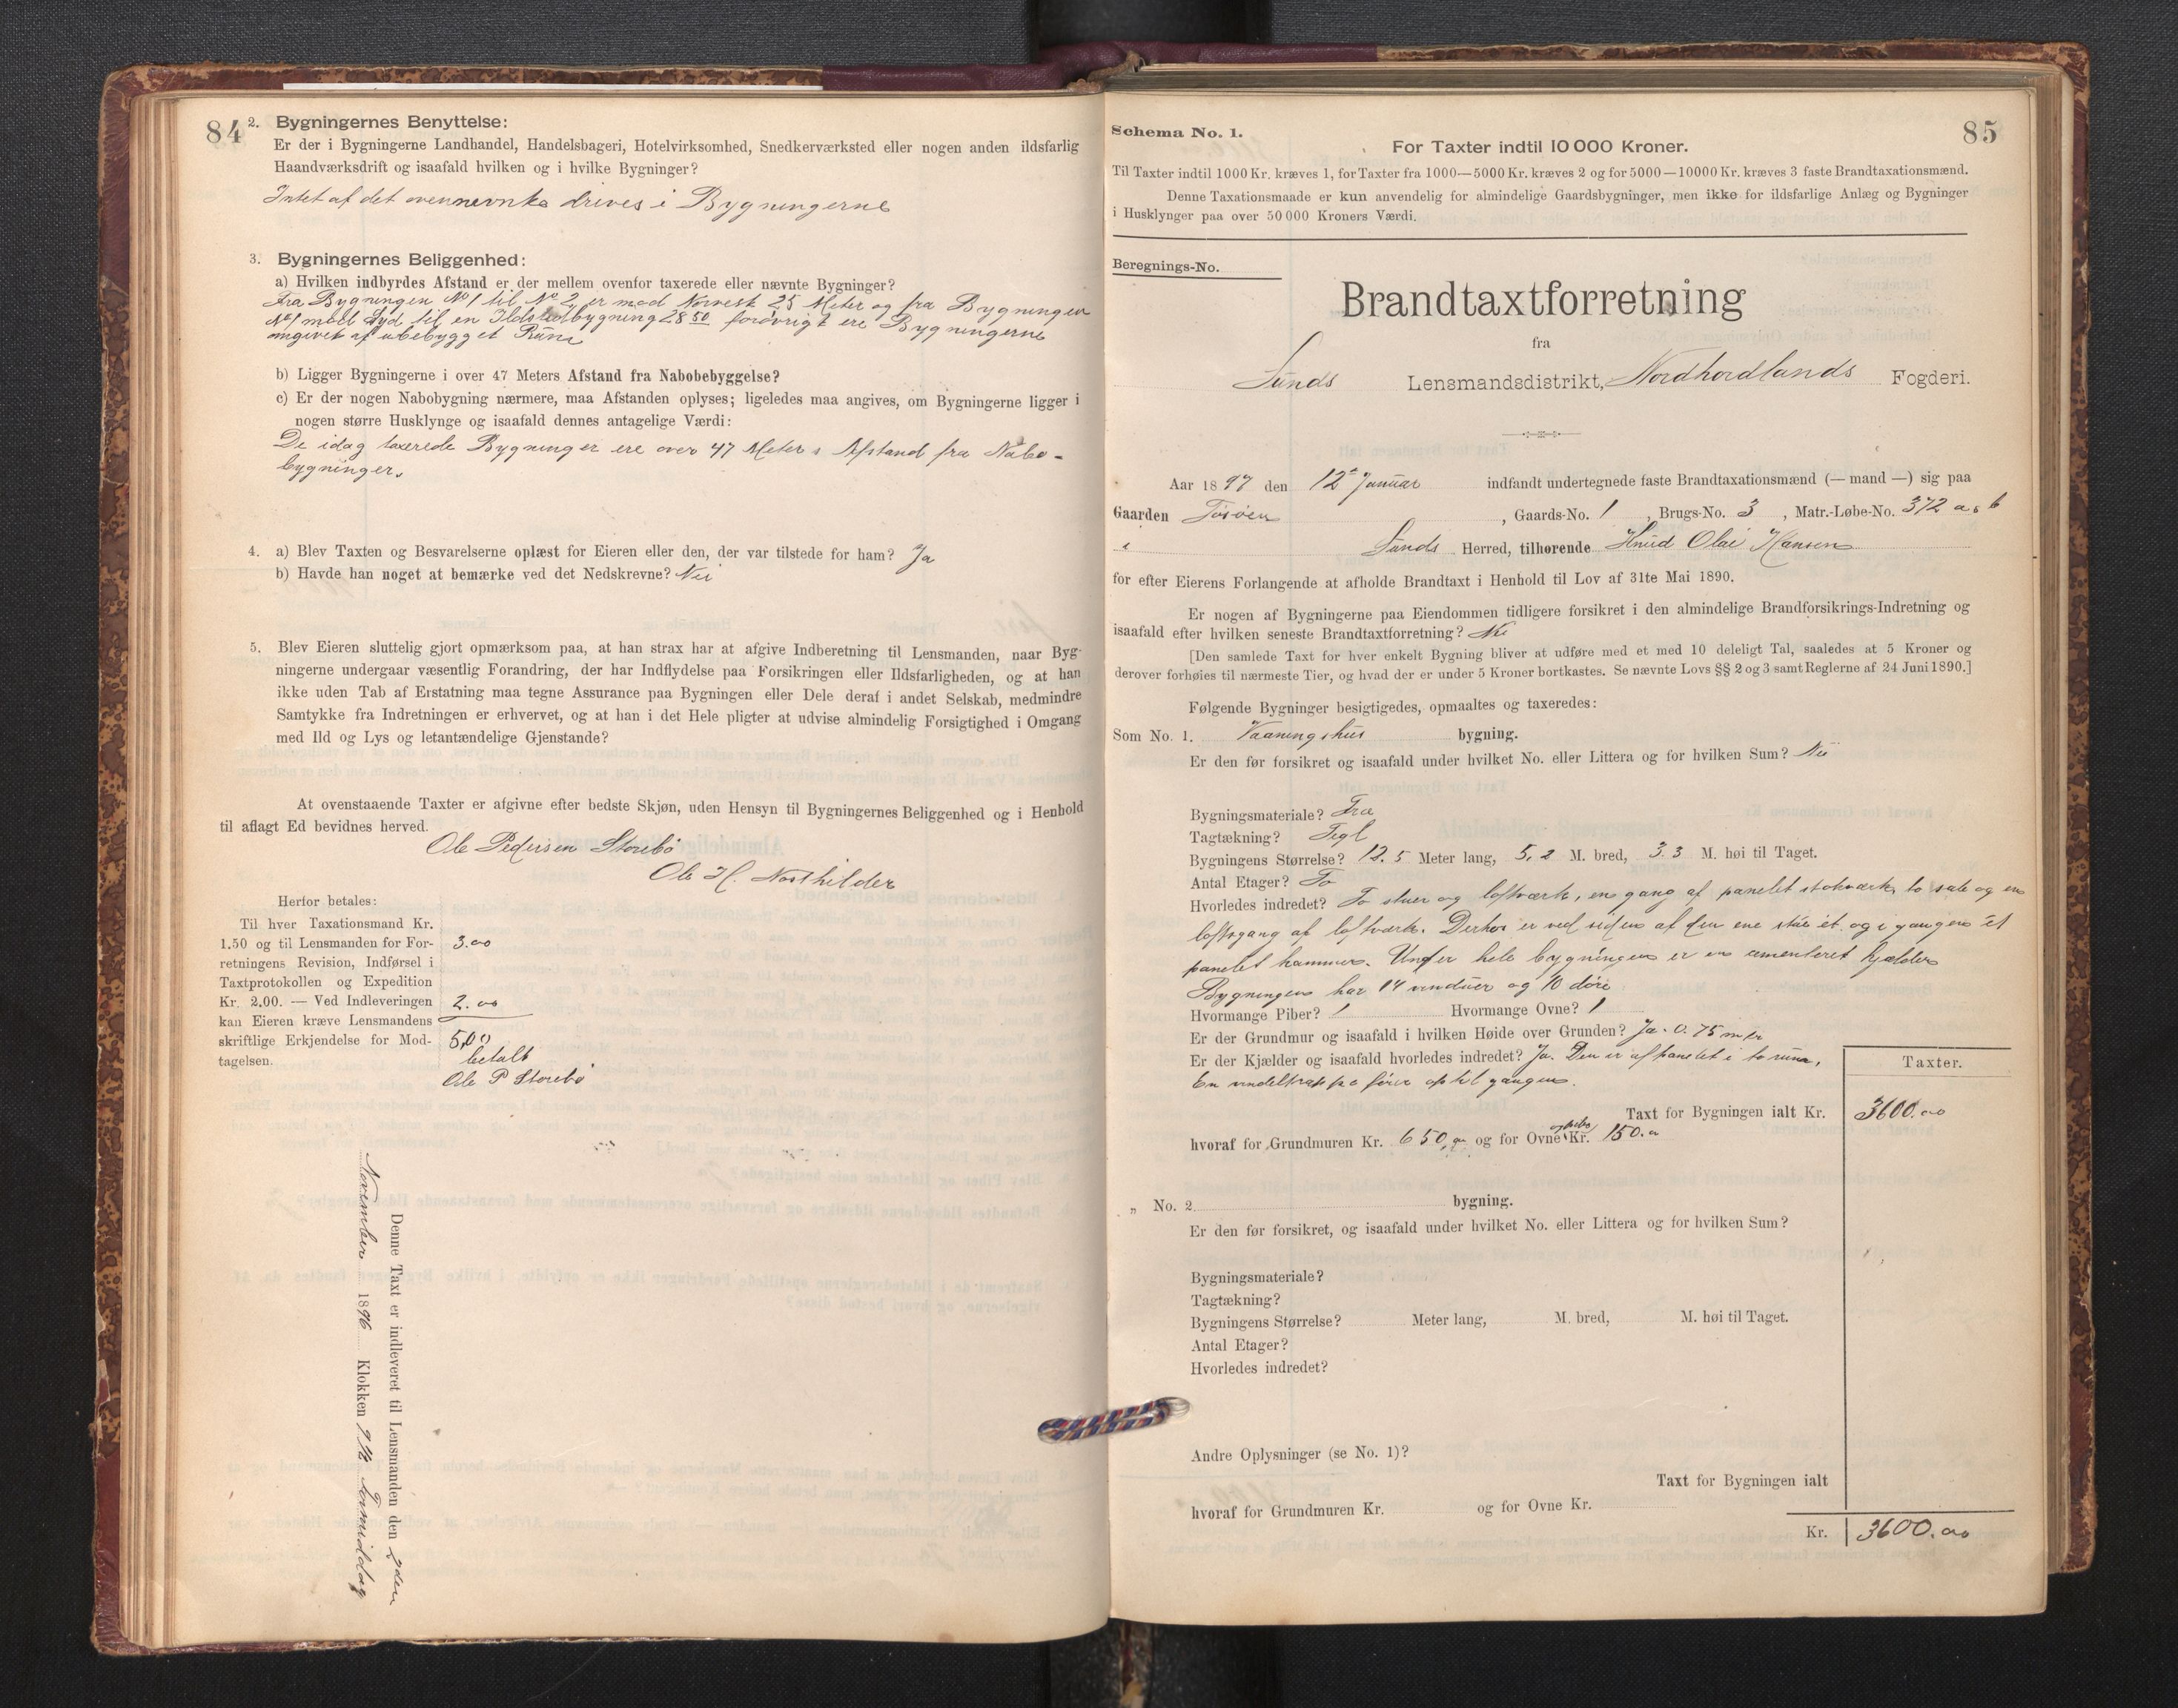 84
2. Bygningernes Benyttelse:
Er der i Bygningerne Landhandel, Handelsbageri, Hotelvirksomhed, Snedkerværksted eller nogen anden ildsfarlig
Haandværksdrift og isaafald hvilken og i hvilke Bygninger?
Intet af det ovennevnte drives i Bygningerne
3. Bygningernes Beliggenhed:
a) Hvilken indbyrdes Afstand er der mellem ovenfor taxerede eller nævnte Bygninger?
Fra Bygningen No 1 til No 2 er mod Norvest 25 Meter og fra Bygningen
No 1 mod Syd til en Ildstedbygning 28 50 forøvrigt ere Bygningerne
omgivet af ubebygget Rum
b) Ligger Bygningerne i over 47 Meters Afstand fra Nabobebyggelse?
c) Er der nogen Nabobygning nærmere, maa Afstanden oplyses; ligeledes maa angives, om Bygningerne ligger i
nogen større Husklynge og isaafald dennes antagelige Værdi:
De idag taxerede Bygninger ere over 47 Meters Afstand fra Nabo-
bygninger.
4. a) Blev Taxten og Besvarelserne oplæst for Eieren eller den, der var tilstede for ham? Ja
b) Havde han noget at bemærke ved det Nedskrevne? Nei
5. Blev Eieren sluttelig gjort opmærksom paa, at han strax har at afgive Indberetning til Lensmanden, naar Byg-
ningerne undergaar væsentlig Forandring, der har Indflydelse paa Forsikringen eller Ildsfarligheden, og at han
ikke uden Tab af Erstatning maa tegne Assurance paa Bygningen eller Dele deraf i andet Selskab, medmindre
Samtykke fra Indretningen er erhvervet, og at han i det Hele pligter at udvise almindelig Forsigtighed i Omgang
med Ild og Lys og letantændelige Gjenstande?
At ovenstaaende Taxter er afgivne efter bedste Skjøn, uden Hensyn til Bygningernes Beliggenhed og i Henhold
til aflagt Ed bevidnes herved.
Ole Pedersen Storebø
Ole H.
Herfor betales:
Til hver Taxationsmand Kr.
1.50 og til Lensmanden for For- 3.00
retningens Revision, Indførsel i
Taxtprotokollen og Expedition
Kr. 2.00. — Ved Indleveringen 2.00
kan Eieren kræve Lensmandens
skriftlige Erkjendelse for Mod- 5,00
tagelsen. betalt
Ole P Storebø
Denne Taxt er indleveret til Lensmanden den 2den
November 1896 Klokken Formiddag
85
Schema No. 1.
For Taxter indtil 10 000 Kroner.
Til Taxter indtil 1000 Kr. kræves 1, for Taxter fra 1000—5000 Kr. kræves 2 og for 5000—10000 Kr. kræves 3 faste Brandtaxationsmænd.
Denne Taxationsmaade er kun anvendelig for almindelige Gaardsbygninger, men ikke for ildsfarlige Anlæg og Bygninger
i Husklynger paa over 50 000 Kroners Værdi.
Beregnings-No.
Brandtaxtforretning
fra
Sunds Lensmandsdistrikt, Nordhordlands Fogderi.
Aar 1897 den 12te Januar indfandt undertegnede faste Brandtaxationsmænd (— mand —) sig paa
Gaarden Tøsøen, Gaards-No. 1, Brugs-No. 3, Matr.-Løbe-No. 372 a, b
i Sunds Herred, tilhørende Knud Olai Hansen
for efter Eierens Forlangende at afholde Brandtaxt i Henhold til Lov af 31te Mai 1890.
Er nogen af Bygningerne paa Eiendommen tidligere forsikret i den almindelige Brandforsikrings-Indretning og
isaafald efter hvilken seneste Brandtaxtforretning? Nei
[Den samlede Taxt for hver enkelt Bygning bliver at udføre med et med 10 deleligt Tal, saaledes at 5 Kroner og
derover forhøies til nærmeste Tier, og hvad der er under 5 Kroner bortkastes. Se nævnte Lovs §§ 2 og 3 samt Reglerne af 24 Juni 1890.]
Følgende Bygninger besigtigedes, opmaaltes og taxeredes:
Som No. 1. Vaaningshus bygning.
Er den før forsikret og isaafald under hvilket No. eller Littera og for hvilken Sum? Nei
Bygningsmateriale? Træ
Tagtækning? Tegl
Bygningens Størrelse? 12.5 Meter lang, 5,2 M. bred, 3.3 M. høi til Taget.
Antal Etager? To
Hvorledes indredet? To stuer og loftværk, en gang af panelet stokværk, to sale og en
loftsgang af loftværk. Derhos er ved siden af den ene stue ét og i gangen ét
panelet kammer. Under hele bygningen er en cementeret kjælder
Bygningen har 14 vinduer og 10 døre
Hvormange Piber? 1 Hvormange Ovne? 1
Er der Grundmur og isaafald i hvilken Høide over Grunden? Ja. 0.75 mtr
Er der Kjælder og isaafald hvorledes indredet? Ja. Den er afpanelet i to rum,
En vindeltrappe fører op til gangen.
Taxter.
Taxt for Bygningen ialt Kr. 3600.00
hvoraf for Grundmuren Kr. 650,00 og for Ovne og piber Kr. 150.00
„ No. 2 bygning.
Er den før forsikret, og isaafald under hvilket No. eller Littera og for hvilken Sum?
Bygningsmateriale?
Tagtækning?
Bygningens Størrelse? Meter lang, M. bred, M. høi til Taget.
Antal Etager?
Hvorledes indredet?
Andre Oplysninger (se No. 1)?
Taxt for Bygningen ialt
hvoraf for Grundmuren Kr. og for Ovne Kr.
Kr. 3600.00